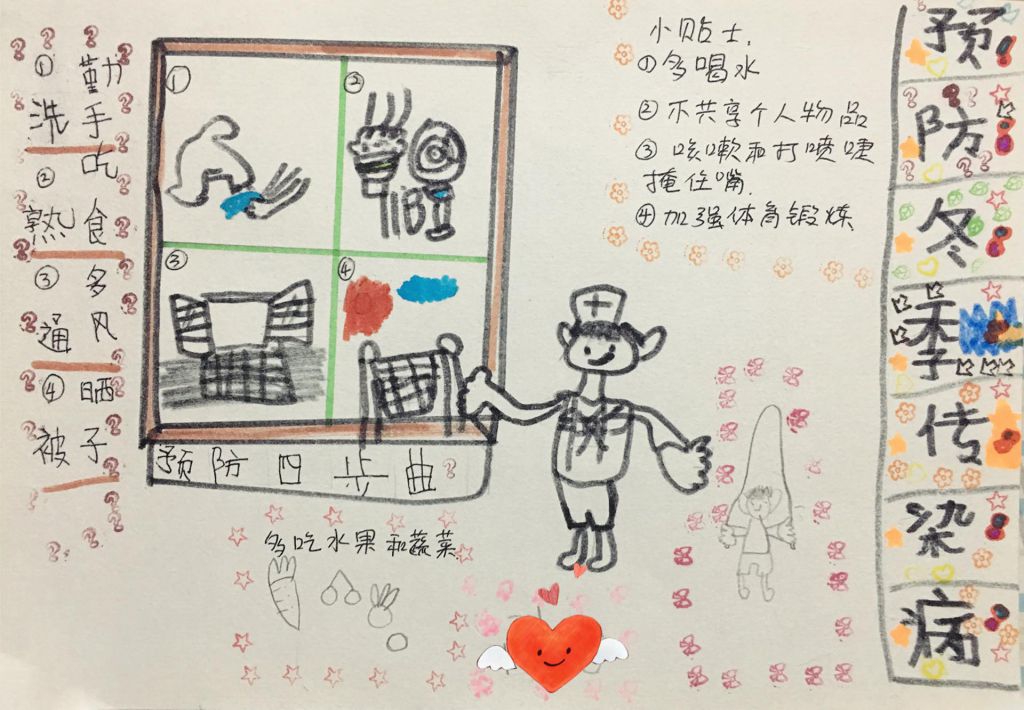 预防冬季传染病
①勤洗手
②吃熟食
③多通风
④晒被子
①
②
③
④
预防四步曲
小贴士.
①多喝水
②不共享个人物品
③咳嗽和打喷嚏
掩住嘴.
④加强体育锻炼
多吃水果和蔬菜